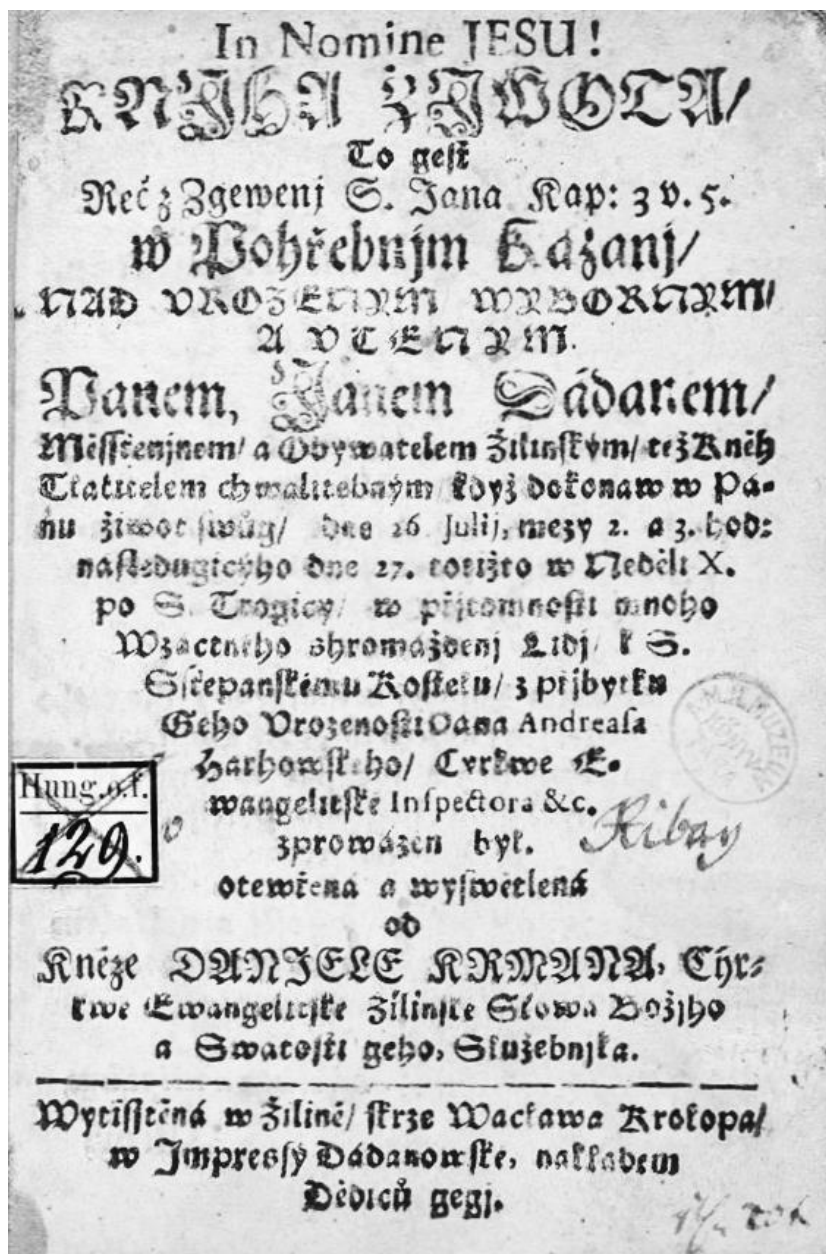 In Nomine JESU!
KNJHA ŽJWOTA/
To gest
Reč z Zgewenj S. Jana Kap: 3 v. 5.
w Pohřebnjm Kázanj/
NAD VROZENYM WYBORNYM/
A VCENYM.
Panem, Janem Dádanem/
Měsstěnjnem/ a Obywatelem Žilinským/ též Kněh
Tlačitelem chwalitebným/ když dokonaw w Pá-
nu žiwot swůg/ dne 26 Julij, mezy 2. a 3. hod:
nasledugicyho dne 27. totižto w Neděli X.
po S. Trogicy/ w přjtomnosti mnoho
Wzactného shromážďenj Lidj/ k S.
Sstěpanskému Kostelu/ z přjbytku
Geho Vrozenosti Pana Andreasa
Harhowskeho/ Cyrkwe E-
wangelitske Inspectora &c.
zprowázen byl.
otewřená a wyswětlená
od
Kněze DANJELE KRMANA, Cýr-
kwe Ewangelitske Žilinske Slowa Božjho
a Swátosti geho, Služebnjka.
Wytisstěná w Žilině/ skrze Wáclawa Krokopa/
w Jmpressý Dádanowske, nakladem
Dědiců gegj.
Hung. o. f.
129.
Ribay